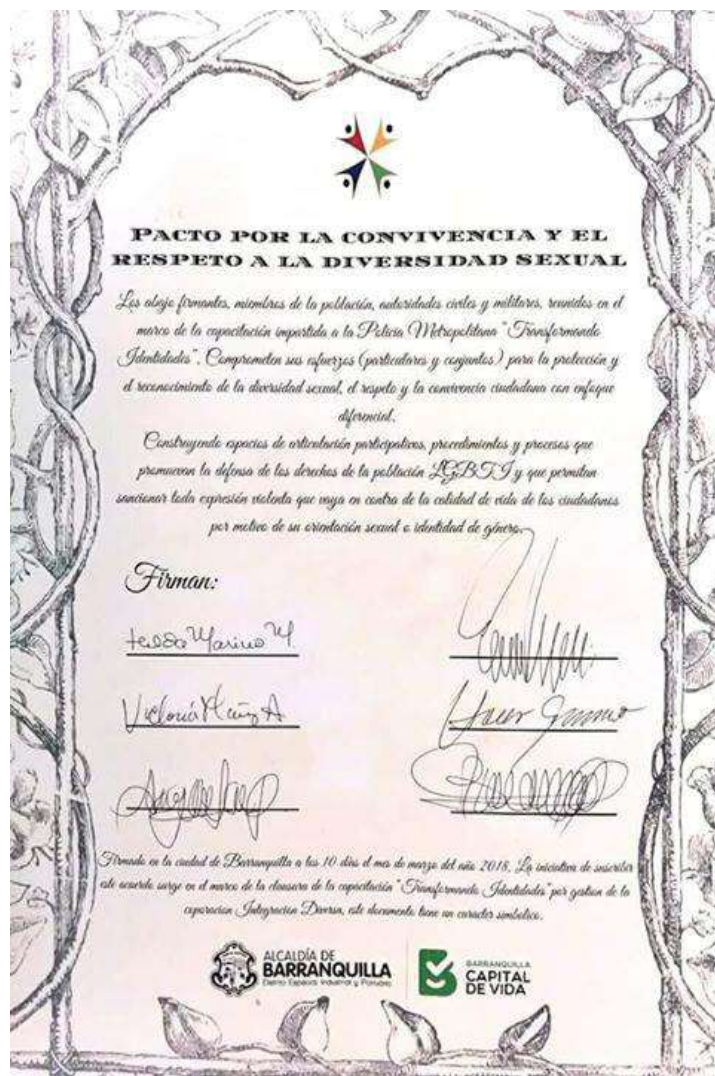 PACTO POR LA CONVIVENCIA Y EL
RESPETO A LA DIVERSIDAD SEXUAL
Los abajo firmantes, miembros de la población, autoridades civiles y militares, reunidos en el
marco de la capacitación impartida a la Policia Metropolitana "Transformando
Identidades". Comprometen sus esfuerzos (particulares y conjuntos) para la protección y
el reconocimiento de la diversidad sexual, el respeto y la convivencia ciudadana con enfoque
diferencial.
Construyendo espacios de articulación participativos, procedimientos y procesos que
promuevan la defensa de los derechos de la población LGBTI y que permitan
sancionar toda expresión violenta que vaya en contra de la calidad de vida de los ciudadanos
por motivo de su orientación sexual o identidad de género.
Firman:
Marino M
Victoria A
Firmado en la ciudad de Barranquilla a los 10 días el mes de marzo del año 2018. La iniciativa de suscribir
este acuerdo surge en el marco de la clausura de la capacitación "Transformando Identidades" por gestion de la
corporacion Integración Diversa, este documento tiene un carácter simbolico.
ALCALDÍA DE
BARRANQUILLA
Distrito Especial, Industrial y Portuario
BARRANQUILLA
CAPITAL
DE VIDA